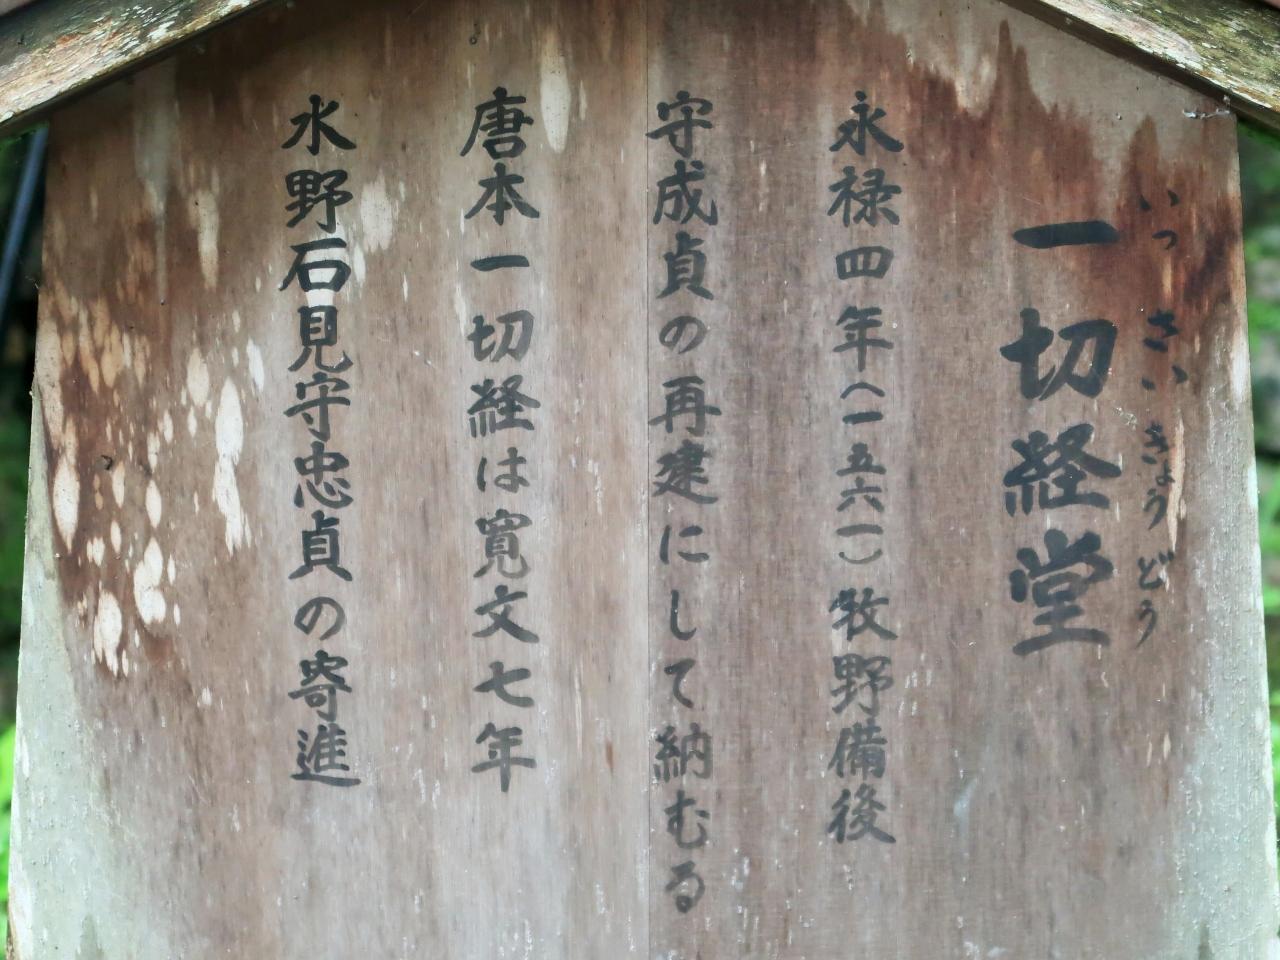 いっさいきょうどう
一切経堂
永禄四年（一五六一）牧野備後
守成貞の再建にして納むる
唐本一切経は寛文七年
水野石見守忠貞の寄進